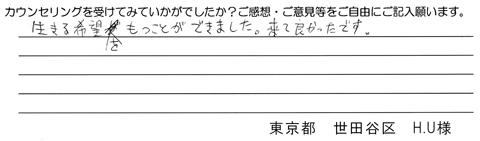 カウンセリングを受けてみていかがでしたか？ご感想・ご意見等をご自由にご記入願います。
生きる希望をもつことができました。来て良かったです。
東京都　世田谷区　H.U様